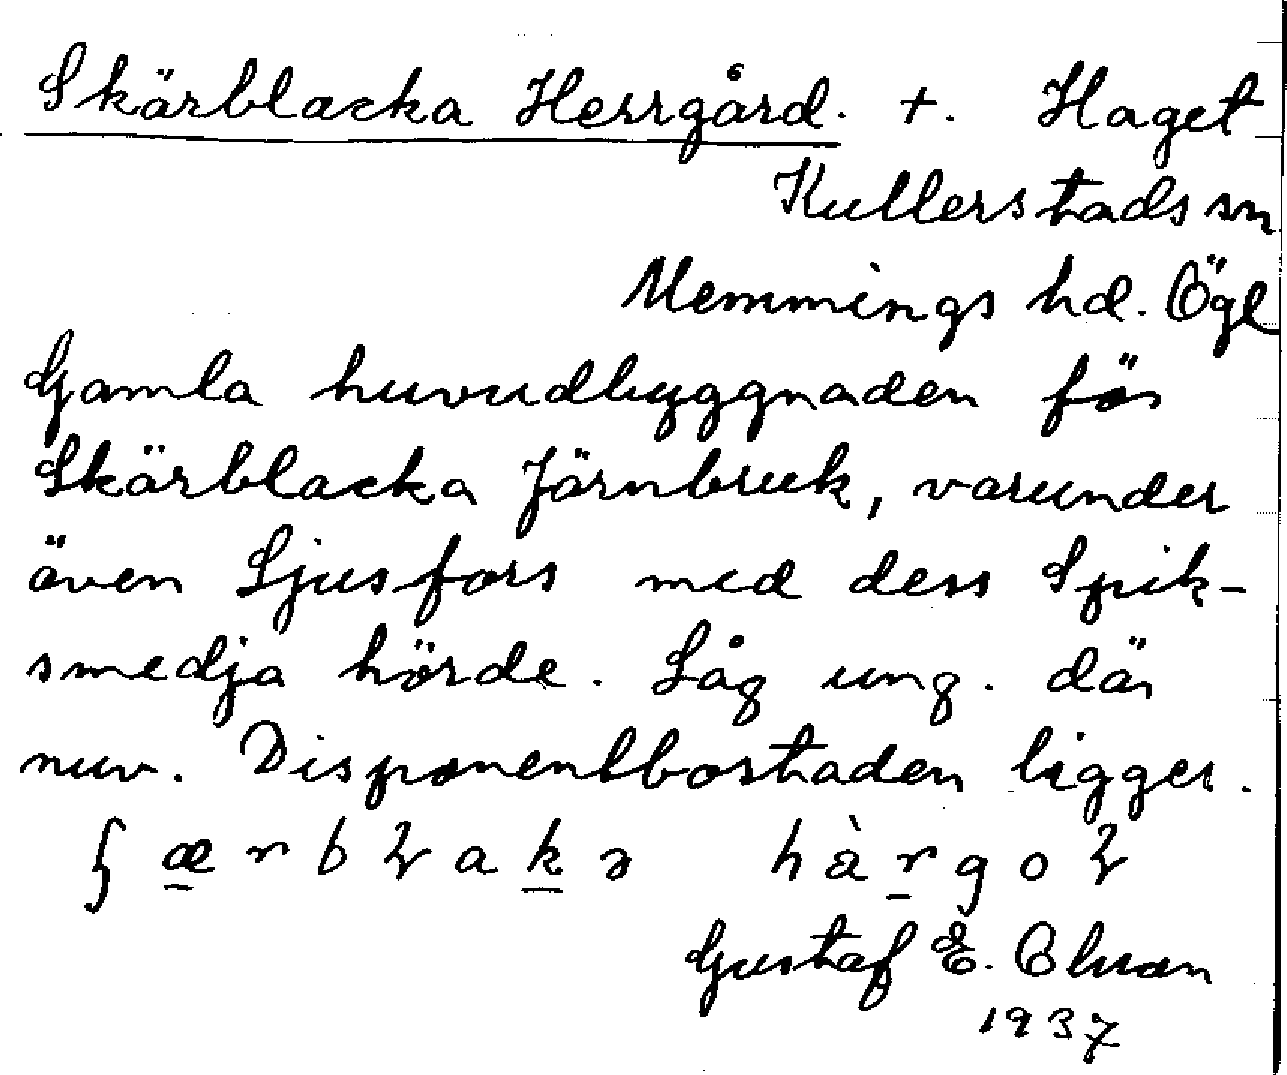 Skärblacka Herrgård. +. Haget
Kullerstads sn
Memmings hd. Ögl
Gamla huvudbyggnaden för
Skärblacka Järnbruk, varunder
även Ljusfors med dess Spik-
smedja hörde. Låg ung. där
nuv. Disponentbostaden ligger.
hàrgoɽ
Gustaf E. Olsson
1937